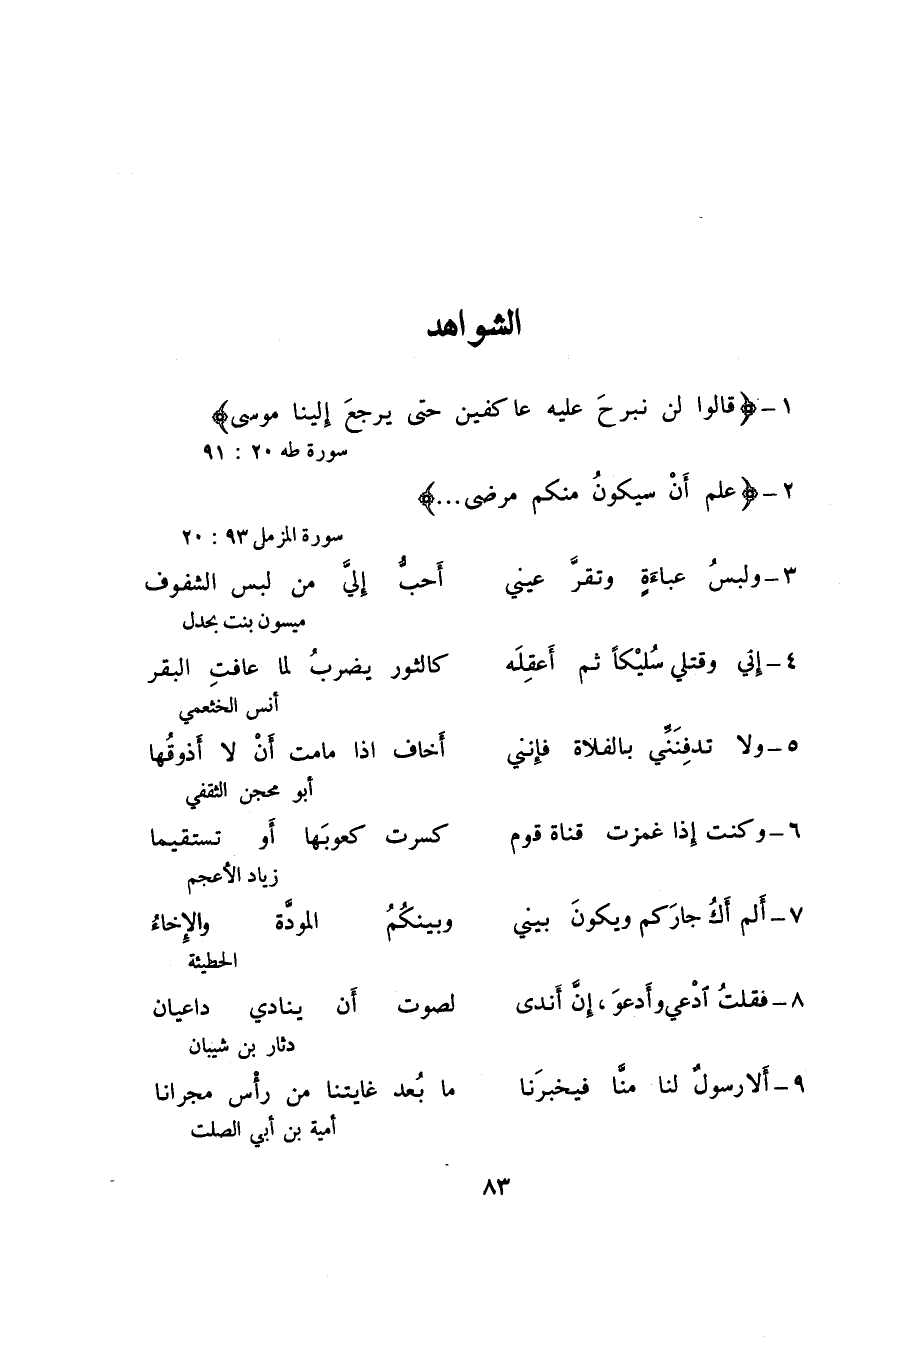 الشواهد
١ - ﴿قالوا لن نبرحَ عليه عاكفين حتى يرجعَ إلينا موسى﴾
سورة طه ٢٠ : ٩١
٢ - ﴿علم أَنْ سيكونُ منكم مرضى...﴾
سورة المزمل ٩٣ : ٢٠
٣ - ولبسُ عباءَةٍ وتقرَّ عيني أَحبُّ إِليَّ من لبس الشفوف
ميسون بنت بحدل
٤ - إِني وقتلي سُلَيْكاً ثم أَعقِلَه كالثور يضربُ لما عافتِ البقر
أنس الخثعمي
٥ - ولا تدفِنَنِّي بالفلاة فإِنني أَخاف اذا مامت أَنْ لا أَذوقُها
أبو محجن الثقفي
٦ - وكنت إِذا غمزت قناة قوم كسرت كعوبَها أَو تستقيما
زياد الأعجم
٧ - أَلم أَكُ جارَكم ويكونَ بيني وبينكُمُ المودَّة والإِخاءُ
الحطيئة
٨ - فقلتُ ٱدْعي وأَدعوَ ، إِنَّ أَندى لصوت أَن ينادي داعيان
دثار بن شيبان
٩ - أَلا رسولٌ لنا منَّا فيخبرَنا ما بُعد غايتنا من رأْس مجرانا
أمية بن أبي الصلت
٨٣